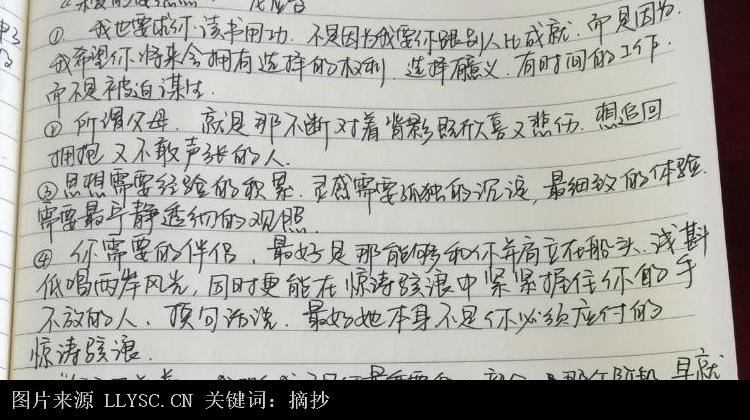 ① 我也要求你读书用功. 不是因为我要你跟别人比成就. 而是因为.
我希望你将来会拥有选择的权利. 选择有意义. 有时间的工作.
而不是被迫谋生.
② 所谓父母. 就是那不断对着背影既欣喜又悲伤. 想追回
拥抱又不敢声张的人.
③ 思想需要经验的积累. 灵感需要孤独的沉淀, 最细致的体验.
需要最宁静透彻的观照.
④ 你需要的伴侣, 最好是那能够和你并肩立在船头. 浅斟
低唱两岸风光, 同时更能在惊涛骇浪中紧紧握住你的手
不放的人. 换句话说. 最好她本身不是你必须应付的
惊涛骇浪.
图片来源 LLYSC.CN 关键词: 摘抄